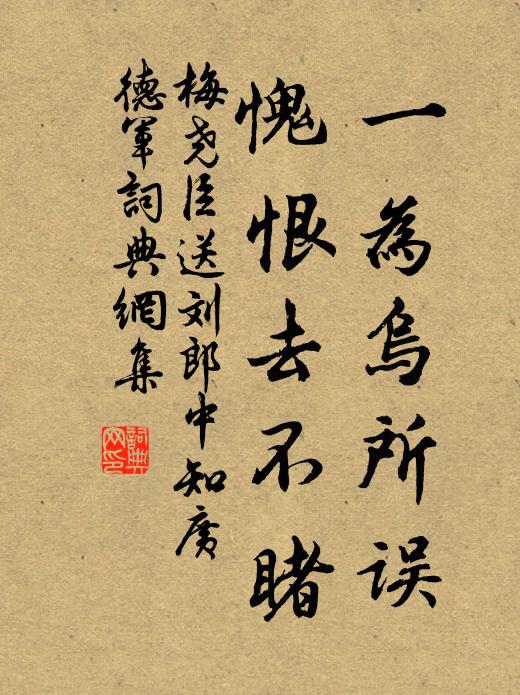 一為烏所误
愧恨去不睹
梅尧臣送刘郎中知廣
德軍詞典網集
詞典
网印